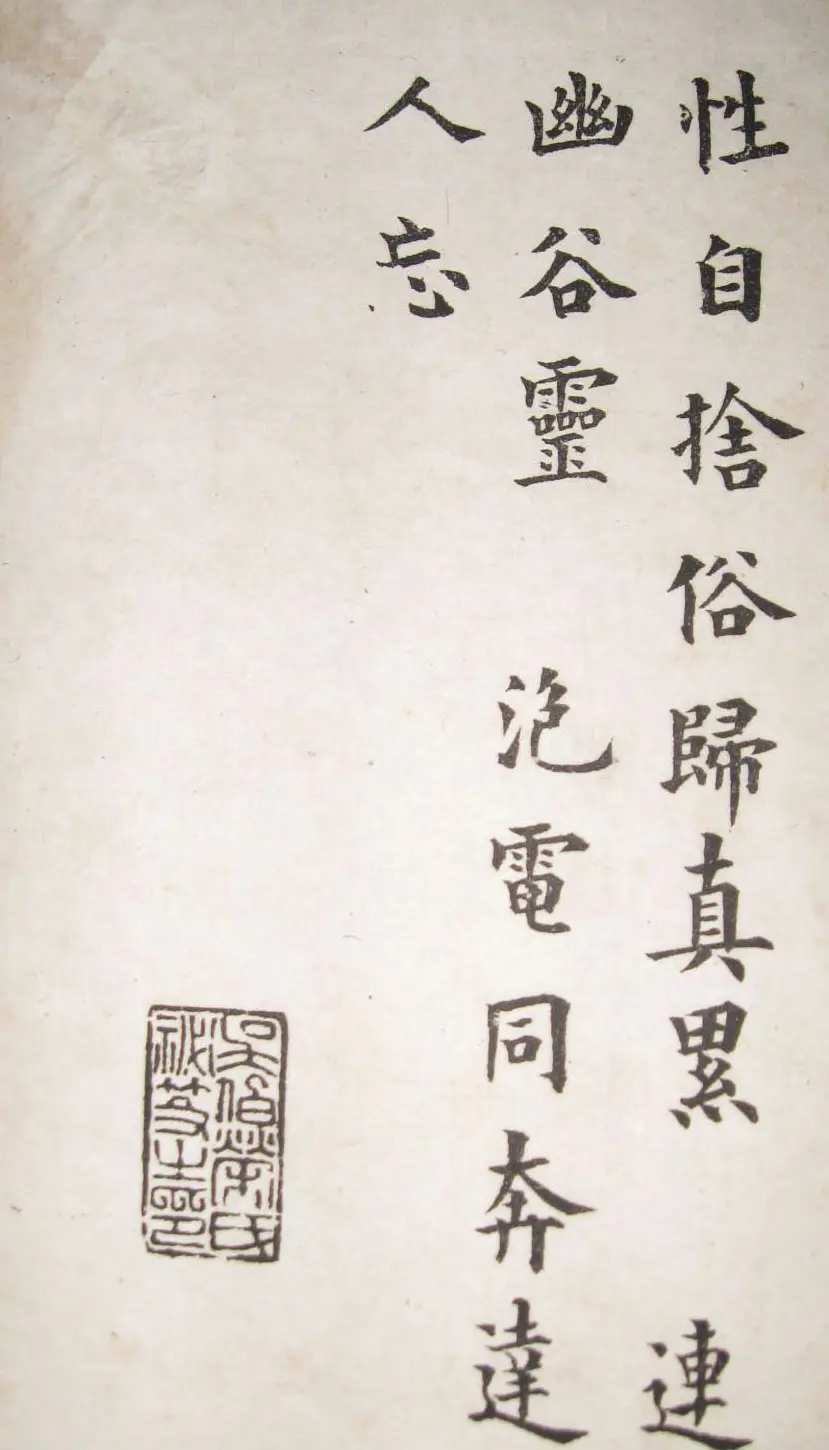 性自捨俗歸真累 連
幽谷靈 泡電同奔達
人忘
吳伯榮氏
秘笈之印